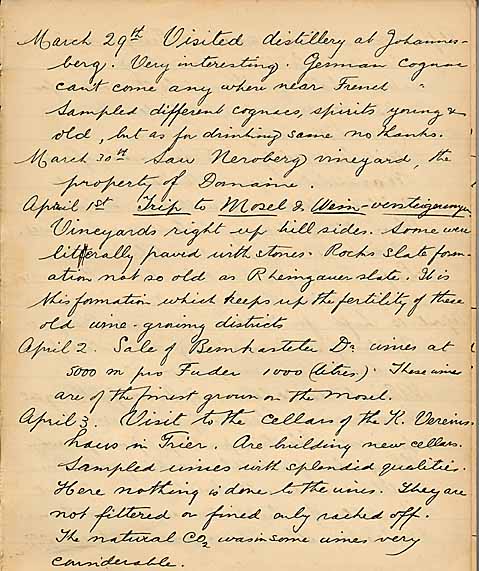 March 29th Visited distillery at Johannes-
berg. Very interesting. German Cognac
can't come any where near French "
Sampled different cognacs, spirits young &
old, but as for drinking same no thanks.
March 30th Saw Neroberg vineyard, the
property of Domaine.
April 1st Trip to Mosel & Wein-versteigerungen
Vineyards right up hill sides. Some were
litterally paved with stones. Rocks slate form-
ation not so old as Rheingauer slate. It is
this formation which keeps up the fertility of these
old wine-growing districts
April 2. Sale of Bernkasteler Dr wines at
5000 m pro Fuder 1000 (litres). These wines
are of the finest grown on the Mosel.
April 3. Visit to the cellars of the K. Vereins-
haus in Trier. Are building new cellars.
Sampled wines with splendid qualities.
Here nothing is done to the wines. They are
not filtered or fined only racked off.
The natural CO2 was in some wines very
considerable.